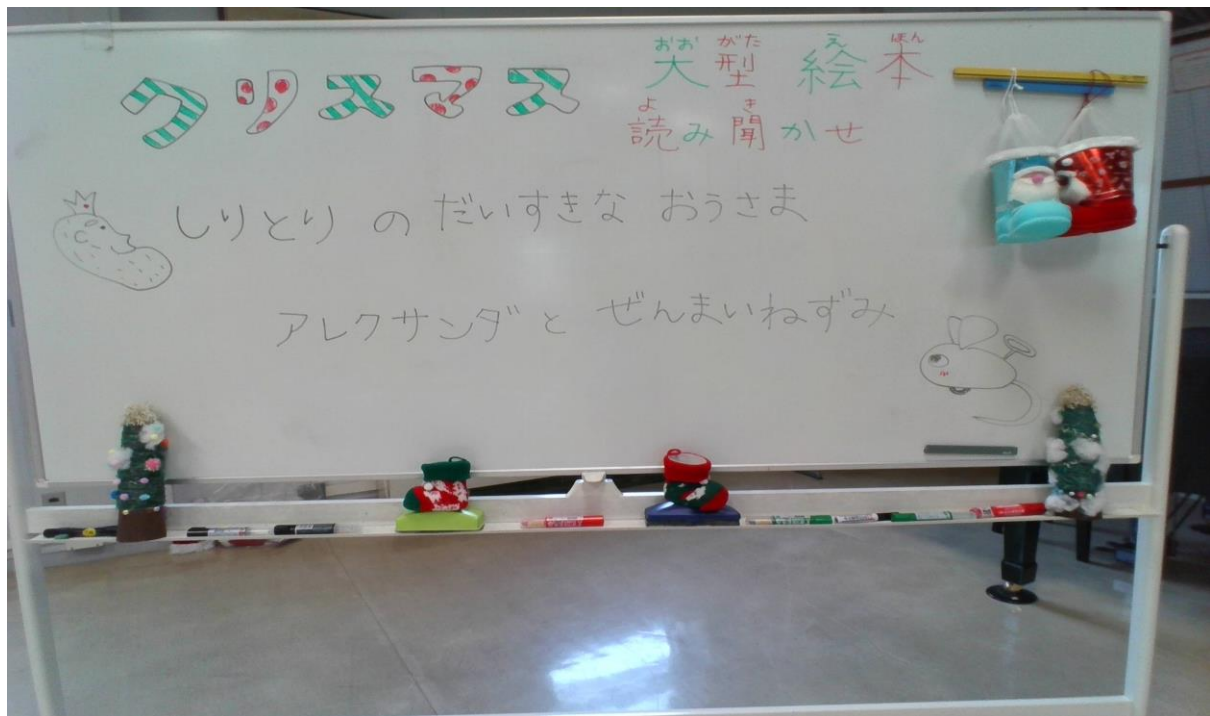 クリスマス
大型 絵本
読み聞かせ
しりとり の だいすきな おうさま
アレクサンダ と ぜんまいねずみ